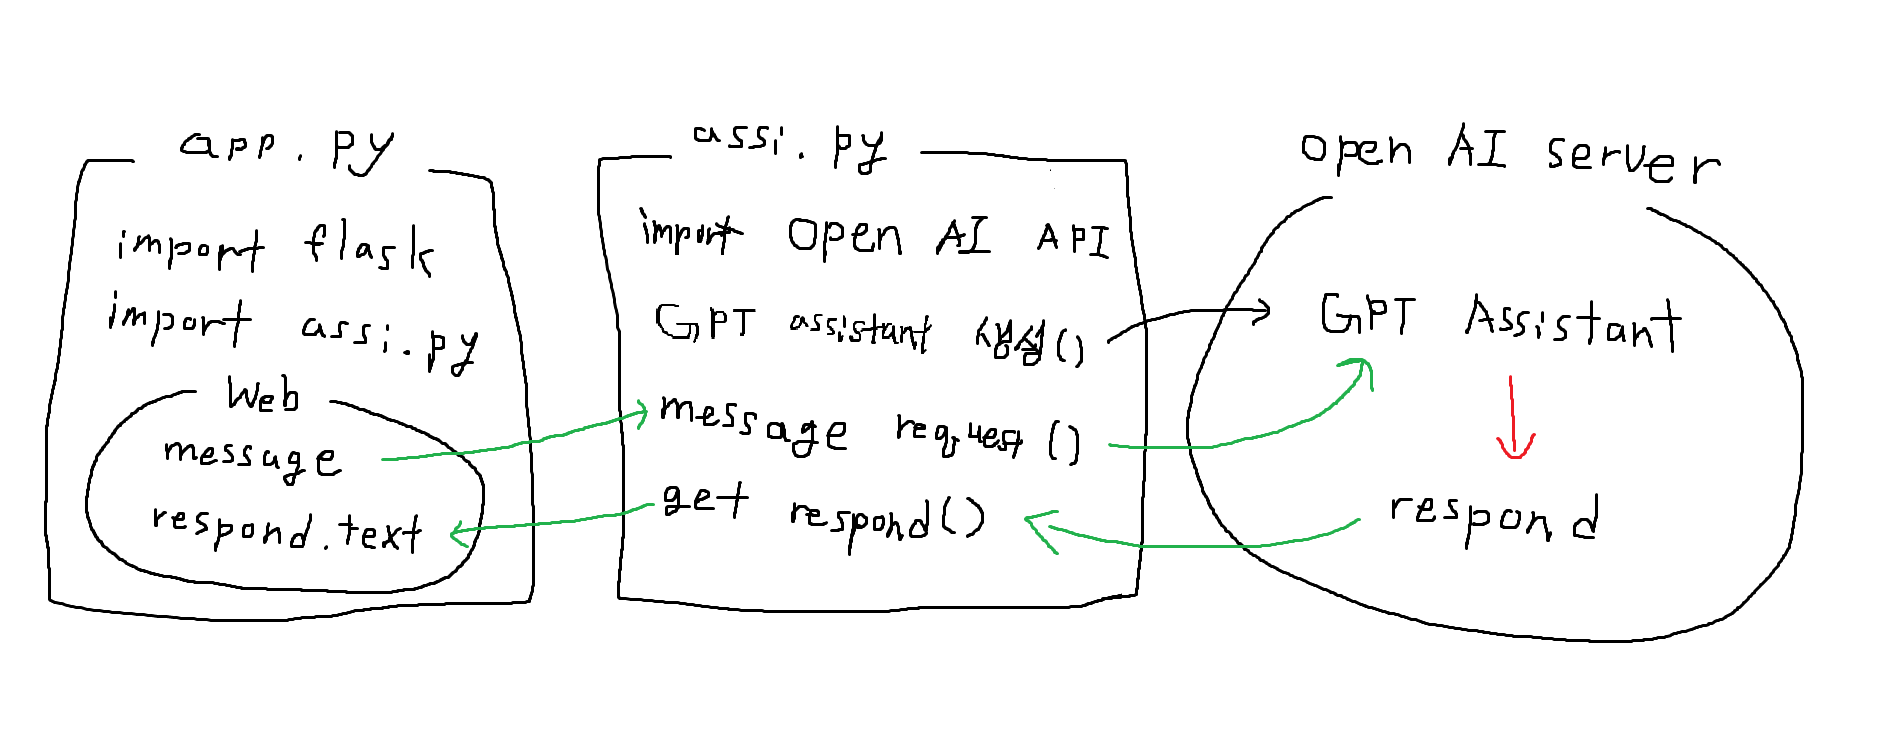 app.py
import flask
import assi.py
Web
message
respond.text
assi.py
import open AI API
GPT assistant 생성()
message request()
get respond()
open AI server
GPT Assistant
respond